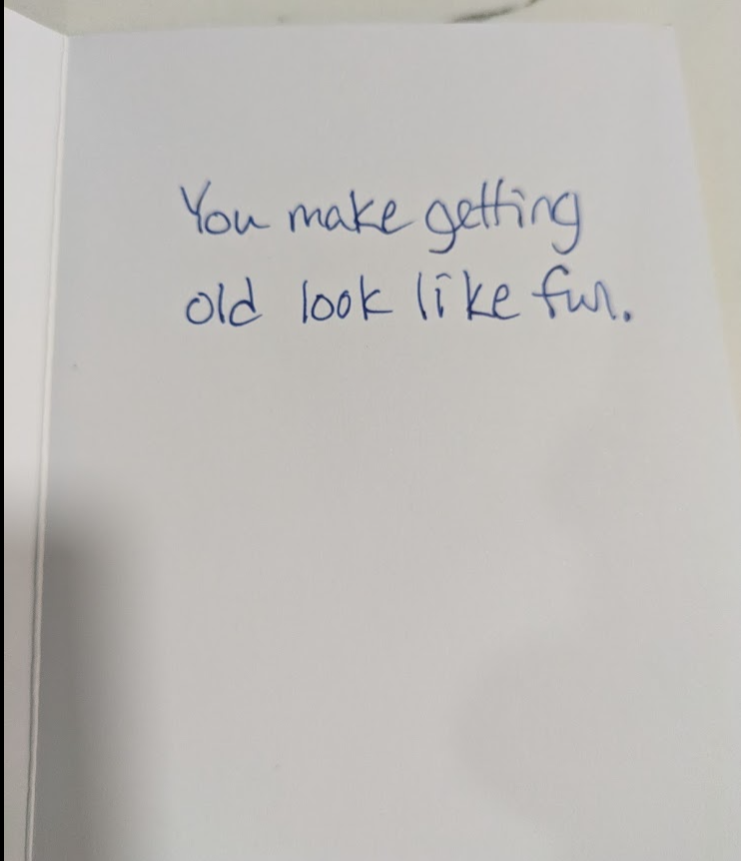 You make getting
old look like fun.